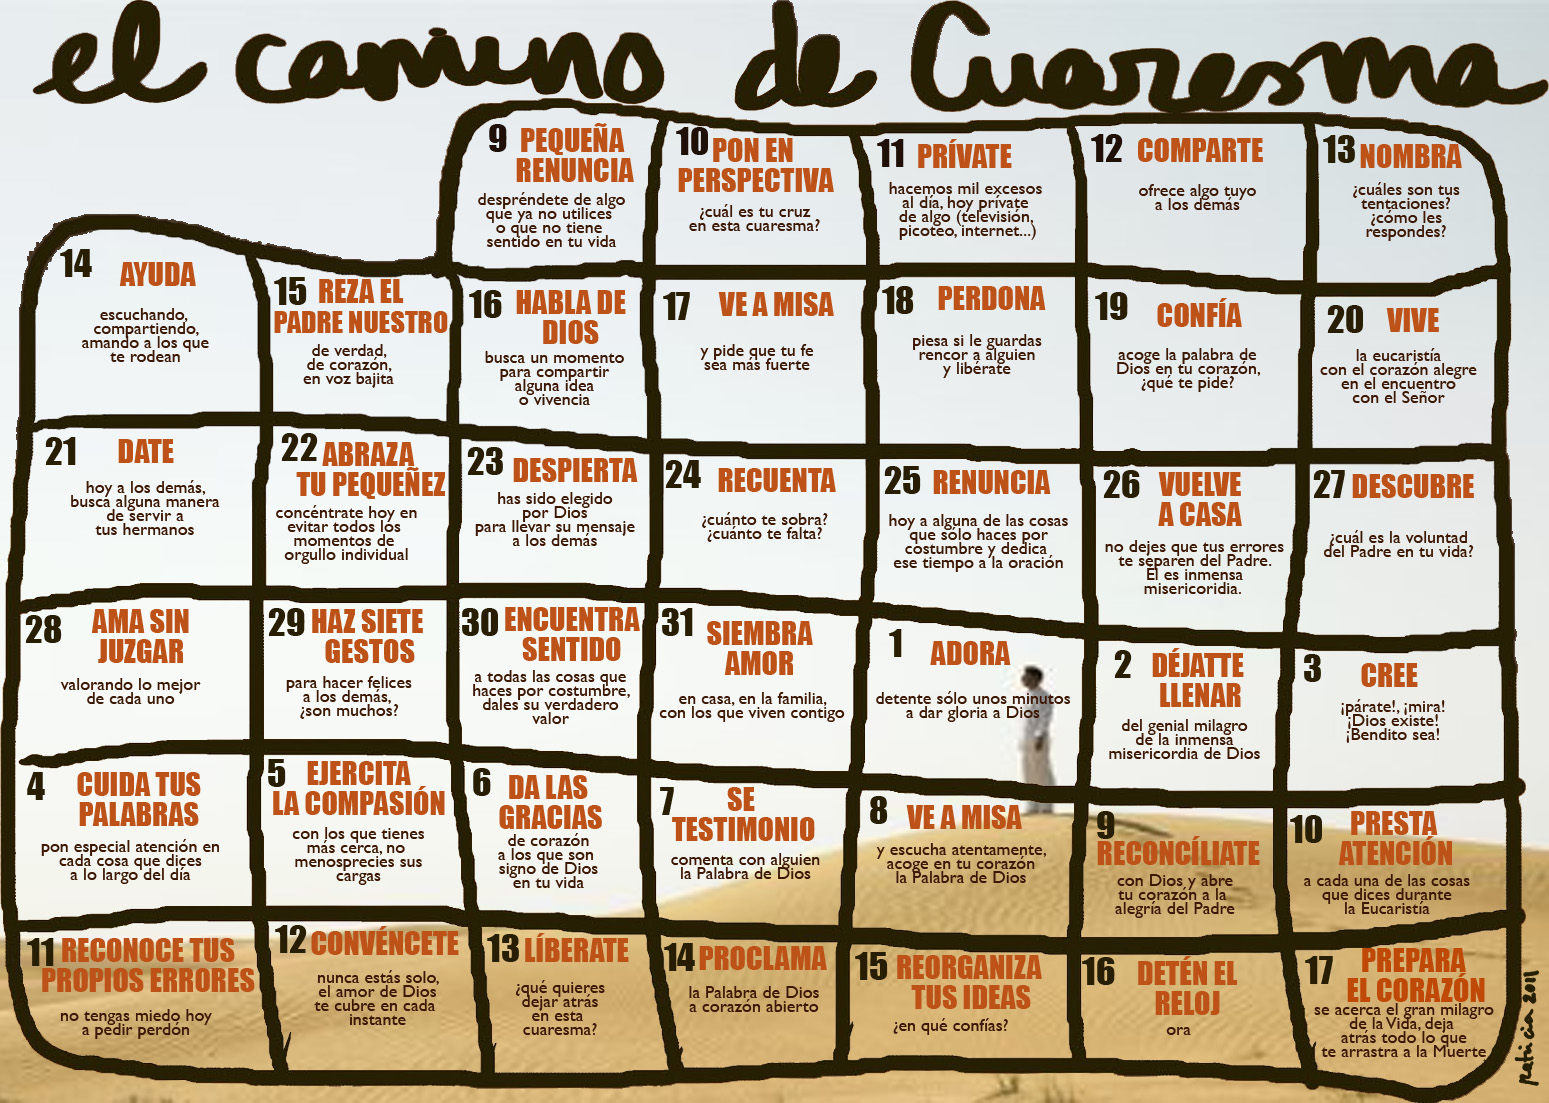 el camino de Cuaresma
9 PEQUEÑA
RENUNCIA
despréndete de algo
que ya no utilices
o que no tiene
sentido en tu vida
10 PON EN
PERSPECTIVA
¿cuál es tu cruz
en esta cuaresma?
11 PRÍVATE
hacemos mil excesos
al día, hoy prívate
de algo (televisión,
picoteo, internet...)
12 COMPARTE
ofrece algo tuyo
a los demás
13 NOMBRA
¿cuáles son tus
tentaciones?
¿cómo les
respondes?
14 AYUDA
escuchando,
compartiendo,
amando a los que
te rodean
15 REZA EL
PADRE NUESTRO
de verdad,
de corazón,
en voz bajita
16 HABLA DE
DIOS
busca un momento
para compartir
alguna idea
o vivencia
17 VE A MISA
y pide que tu fe
sea más fuerte
18 PERDONA
piesa si le guardas
rencor a alguien
y libérate
19 CONFÍA
acoge la palabra de
Dios en tu corazón,
¿qué te pide?
20 VIVE
la eucaristía
con el corazón alegre
en el encuentro
con el Señor
21 DATE
hoy a los demás,
busca alguna manera
de servir a
tus hermanos
22 ABRAZA
TU PEQUEÑEZ
concéntrate hoy en
evitar todos los
momentos de
orgullo individual
23 DESPIERTA
has sido elegido
por Dios
para llevar su mensaje
a los demás
24 RECUENTA
¿cuánto te sobra?
¿cuánto te falta?
25 RENUNCIA
hoy a alguna de las cosas
que sólo haces por
costumbre y dedica
ese tiempo a la oración
26 VUELVE
A CASA
no dejes que tus errores
te separen del Padre.
El es inmensa
misericoridia.
27 DESCUBRE
¿cuál es la voluntad
del Padre en tu vida?
28 AMA SIN
JUZGAR
valorando lo mejor
de cada uno
29 HAZ SIETE
GESTOS
para hacer felices
a los demás,
¿son muchos?
30 ENCUENTRA
SENTIDO
a todas las cosas que
haces por costumbre,
dales su verdadero
valor
31 SIEMBRA
AMOR
en casa, en la familia,
con los que viven contigo
1 ADORA
detente sólo unos minutos
a dar gloria a Dios
2 DÉJATTE
LLENAR
del genial milagro
de la inmensa
misericordia de Dios
3 CREE
¡párate!, ¡mira!
¡Dios existe!
¡Bendito sea!
4 CUIDA TUS
PALABRAS
pon especial atención en
cada cosa que dices
a lo largo del día
5 EJERCITA
LA COMPASIÓN
con los que tienes
más cerca, no
menosprecies sus
cargas
6 DA LAS
GRACIAS
de corazón
a los que son
signo de Dios
en tu vida
7 SE
TESTIMONIO
comenta con alguien
la Palabra de Dios
8 VE A MISA
y escucha atentamente,
acoge en tu corazón
la Palabra de Dios
9
RECONCÍLIATE
con Dios y abre
tu corazón a la
alegría del Padre
10 PRESTA
ATENCIÓN
a cada una de las cosas
que dices durante
la Eucaristía
11 RECONOCE TUS
PROPIOS ERRORES
no tengas miedo hoy
a pedir perdón
12 CONVÉNCETE
nunca estás solo,
el amor de Dios
te cubre en cada
instante
13 LÍBERATE
¿qué quieres
dejar atrás
en esta
cuaresma?
14 PROCLAMA
la Palabra de Dios
a corazón abierto
15 REORGANIZA
TUS IDEAS
¿en qué confías?
16 DETÉN EL
RELOJ
ora
17 PREPARA
EL CORAZÓN
se acerca el gran milagro
de la Vida, deja
atrás todo lo que
te arrastra a la Muerte
patricia 2011